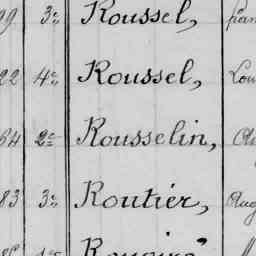 99 3e Roussel,
22 4e Roussel, Lou
64 2e Rousselin,
83 3e Routier, Aug